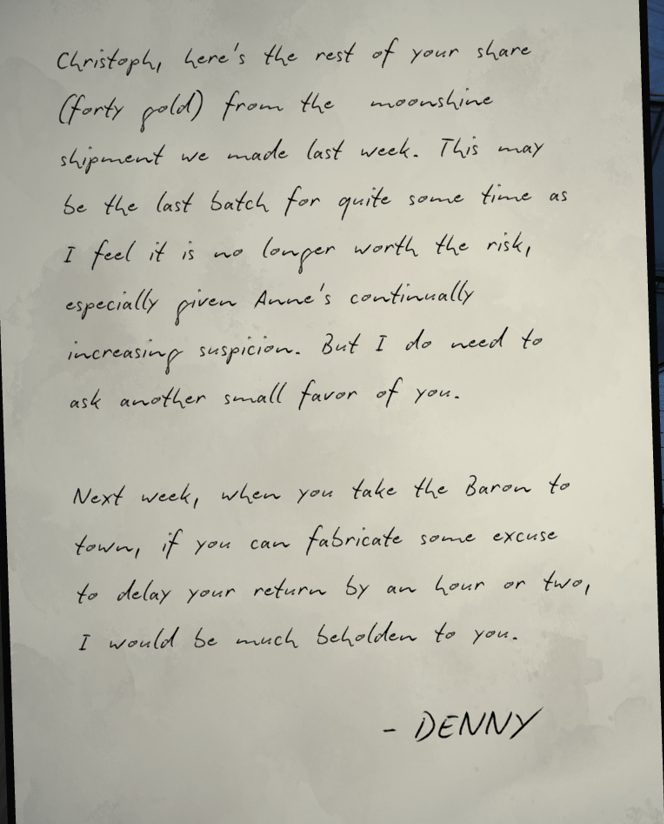 Christoph, here's the rest of your share
(forty gold) from the moonshine
shipment we made last week. This may
be the last batch for quite some time as
I feel it is no longer worth the risk,
especially given Anne's continually
increasing suspicion. But I do need to
ask another small favor of you.
Next week, when you take the Baron to
town, if you can fabricate some excuse
to delay your return by an hour or two,
I would be much beholden to you.
- DENNY